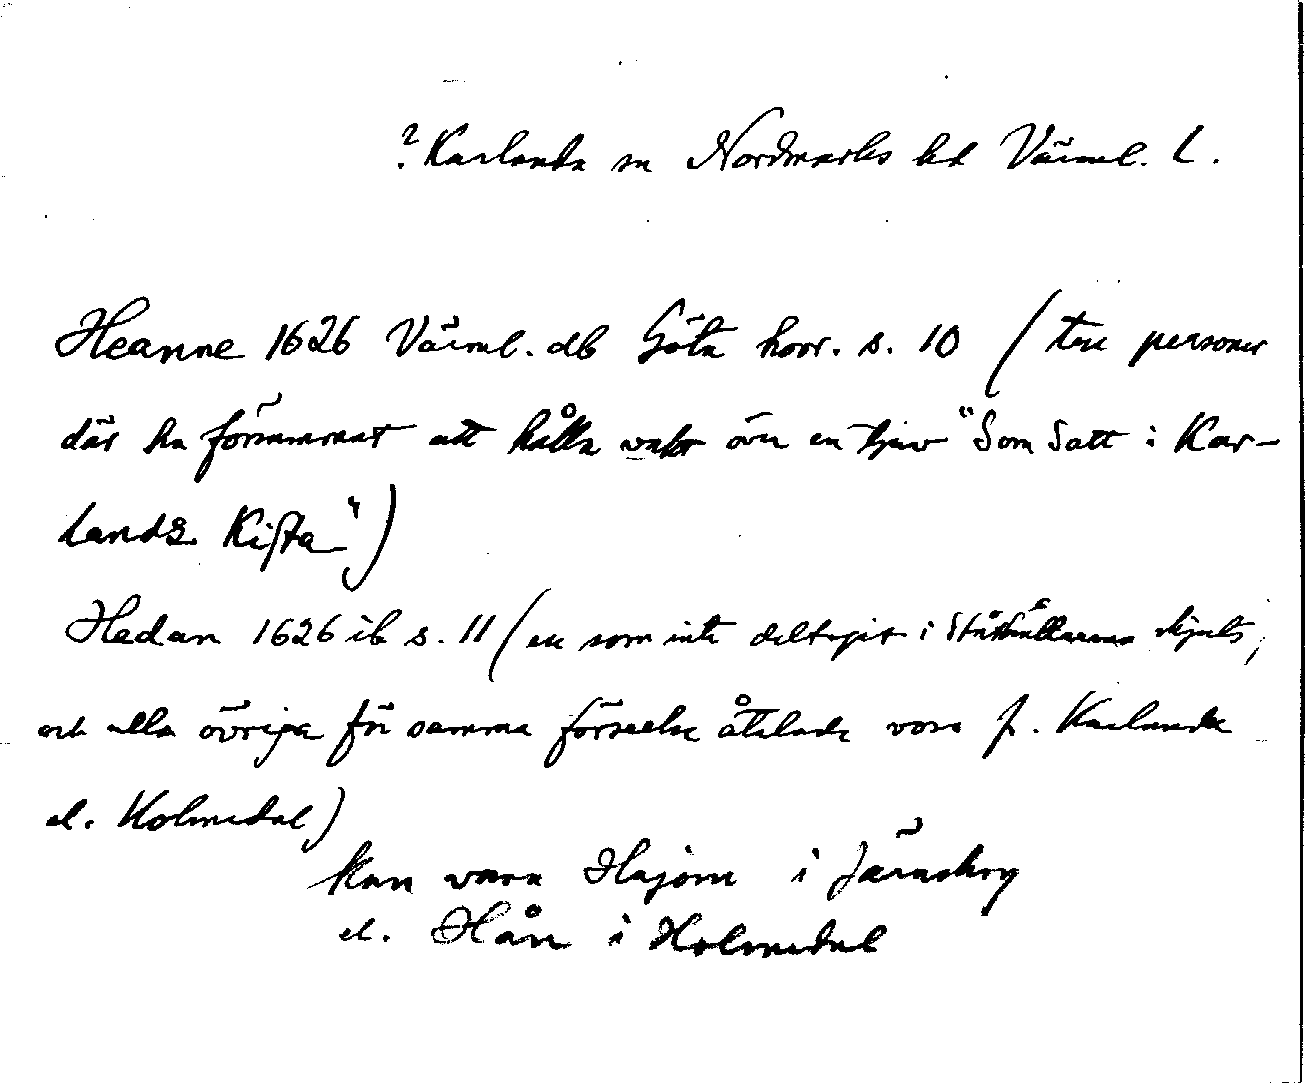 ? Karlanda sn Nordmarks hd Värml. l.
Heanne 1626 Värml. db Göta hovr. s. 10 (tre personer
där ha försummat att hålla vakt över en tjuv "Som Satt i Kar-
lands Kista")
Hedan 1626 ib s. 11 (en som inte deltagit i Ståthållarens skjuts,
och alla övriga för samma förseelse åtalade voro fr. Karlanda
el. Holmedal)
kan vara Hajom i Järnskog
el. Hån i Holmedal